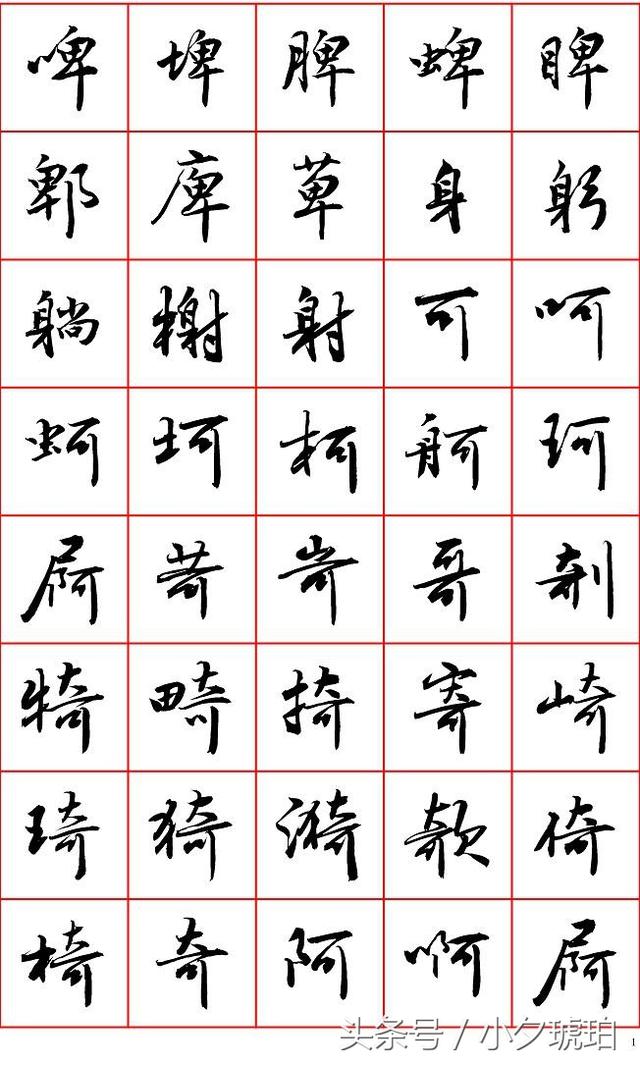 啤 埤 脾 蜱 睥
郫 庳 萆 身 躬
躺 榭 射 可 呵
蚵 坷 柯 舸 珂
屙 苛 岢 哥 剞
犄 畸 掎 寄 崎
琦 猗 漪 欹 倚
椅 奇 阿 啊 屙
头条号 / 小夕琥珀 1